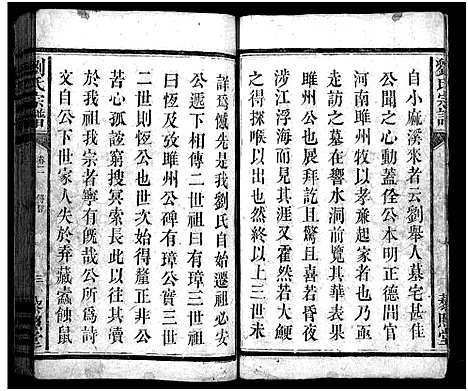 劉氏宗譜
自小麻溪來者云劉舉人墓宅甚佳
公聞之心動蓋佺公本明正德間官
河南睢州牧以孝廉起家者也于是
走訪之墓在響水洞前覽其華表果
睢州公也展拜訖且驚且喜若昏夜
涉江浮海而莫測其涯又霍然若大鯁
之得探喉以出也然此以上三世未
詳爲憾先是我劉氏自始遷祖必安
公遞下相傳二世祖曰有璋三世祖
曰恆及證睢州公碑有璋公實三世
二世則恆公也世次始得釐正非公
苦心孤詣窮搜冥索長此以往其凟
於我祖我宗者寧有旣哉公所爲詩
文自公下世家人失於弆藏蟲蝕鼠
劉氏宗譜
卷二